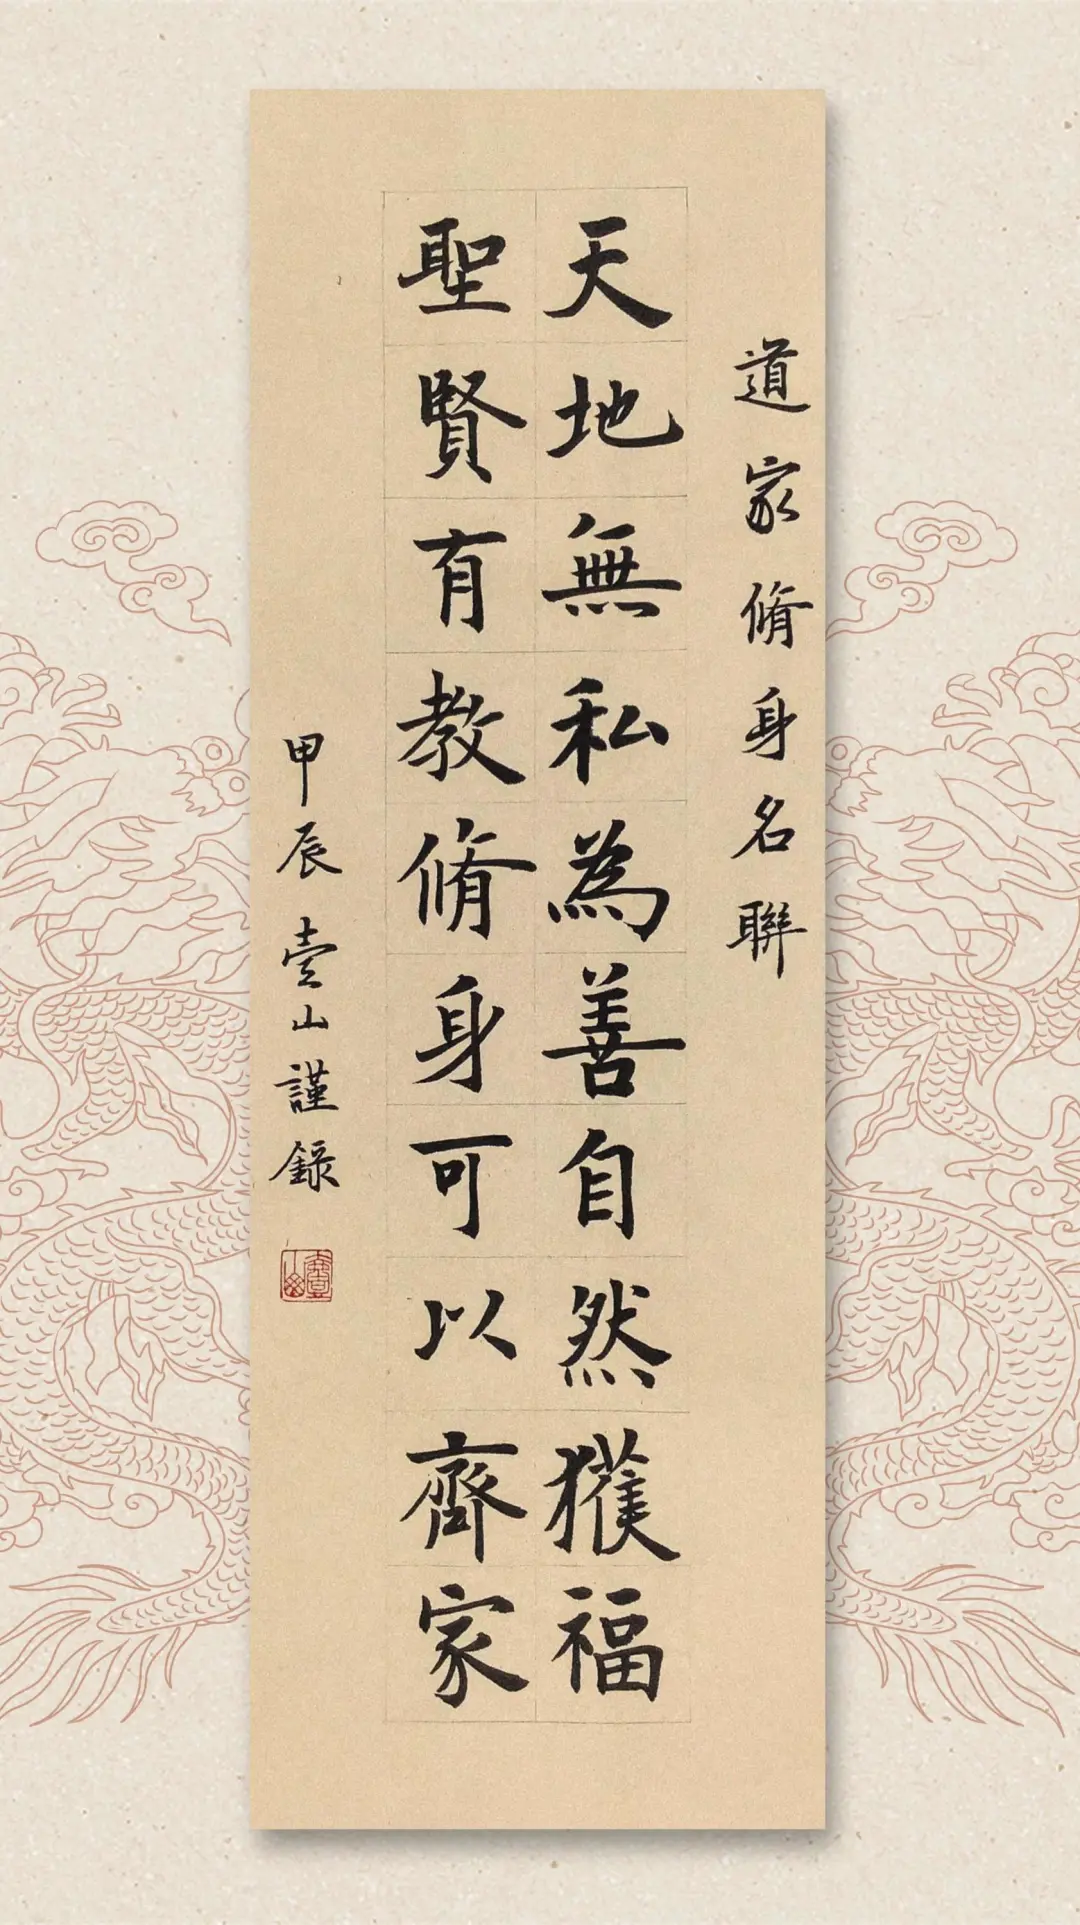 道家脩身名聯
天地無私為善自然獲福
聖賢有教脩身可以齊家
甲辰壹山謹錄